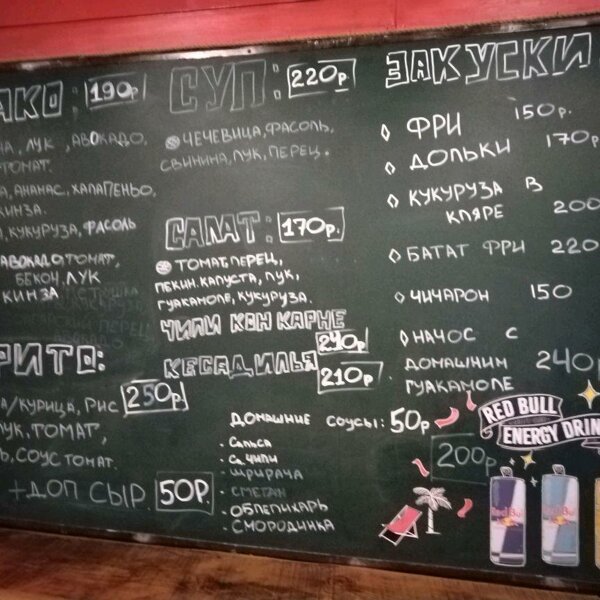 АКО: 190р
НА, ЛУК, АВОКАДО,
ТОМАТ.
А, АНАНАС, ХАЛАПЕНЬО,
КИНЗА.
, КУКУРУЗА, ФАСОЛЬ
АВОКАДО, ТОМАТ,
БЕКОН, ЛУК
КИНЗА
РИТО:
250р
А/КУРИЦА, РИС
ЛУК, ТОМАТ,
Ь, СОУС ТОМАТ.
+ДОП СЫР. 50Р.
СУП: 220р
ЧЕЧЕВИЦА, ФАСОЛЬ,
СВИНИНА, ЛУК, ПЕРЕЦ.
САЛАТ: 170р.
ТОМАТ, ПЕРЕЦ,
ПЕКИН. КАПУСТА, ЛУК,
ГУАКАМОЛЕ, КУКУРУЗА.
ЧИЛИ КОН КАРНЕ
240р
КЕСАДИЛЬЯ 210р
ДОМАШНИЕ СОУСЫ: 50р
· Сальса
· Са. ЧИПИ
· ШРИРАЧА
· СМЕТАН
· ОБЛЕПИХАРЬ
· СМОРОДИНКА
ЗАКУСКИ
◊ ФРИ 150р.
◊ ДОЛЬКИ 170р
◊ КУКУРУЗА В
КЛЯРЕ 200
◊ БАТАТ ФРИ 220
◊ ЧИЧАРОН 150
◊ НАЧОС С
ДОМАШНИМ 240р
ГУАКАМОЛЕ
RED BULL
ENERGY DRIN
200р
Red Bull
Red Bull